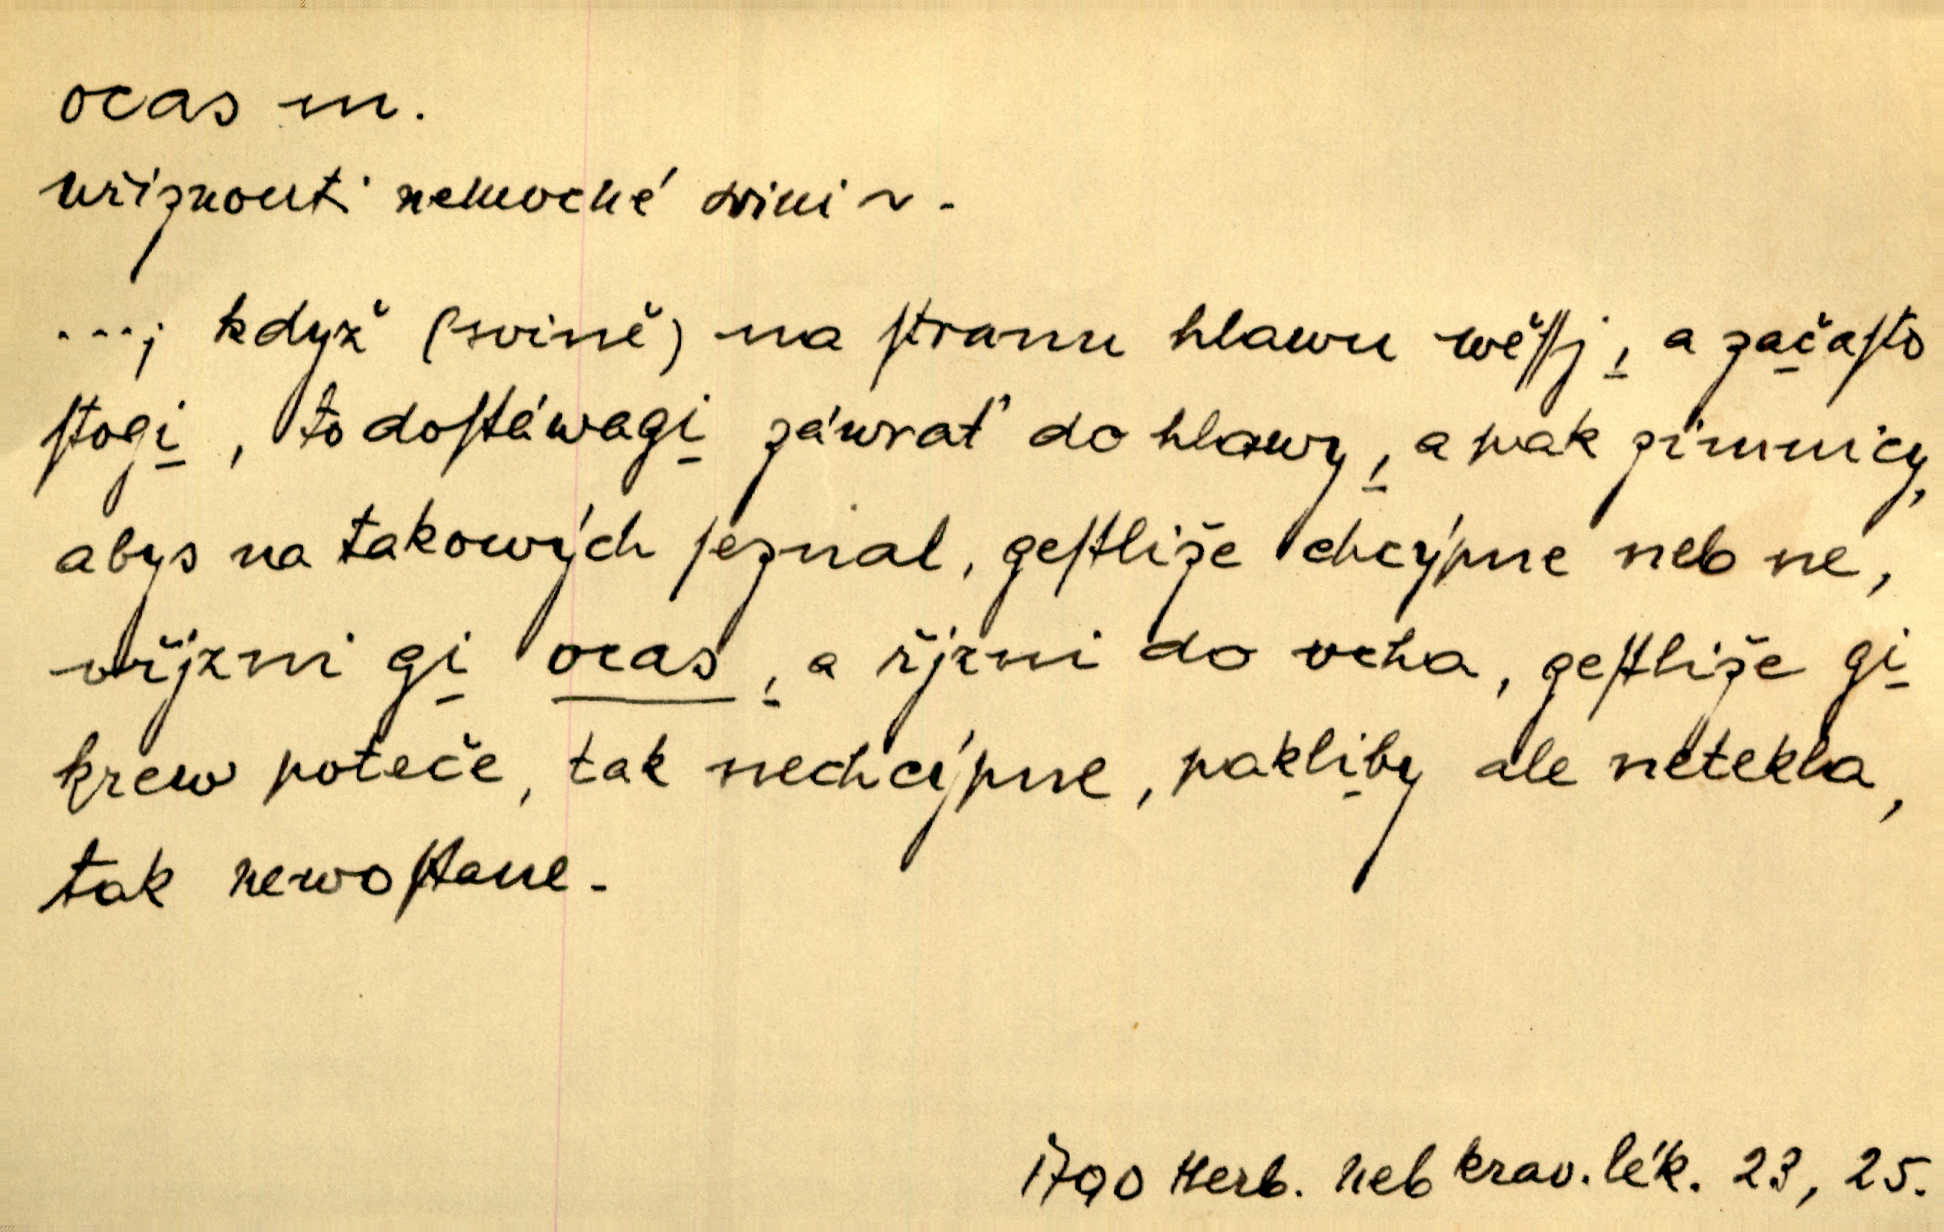 ocas m.
uřiznouti nemocné svini ~.
...; když (svině) na ſtranu hlawu wěſſj, a začaſto
ſtogi, to doſtáwagi záwrať do hlawy, a pak zimnicy,
abys na takowých ſeznal, geſtliže chcýpne neb ne,
vřjzni gi ocas, a řjzni do vcha, geſtliže gi
krew poteče, tak nechcýpne, pakliby ale netekla,
tak newoſtane.
1790 Herb. neb krav. lék. 23, 25.